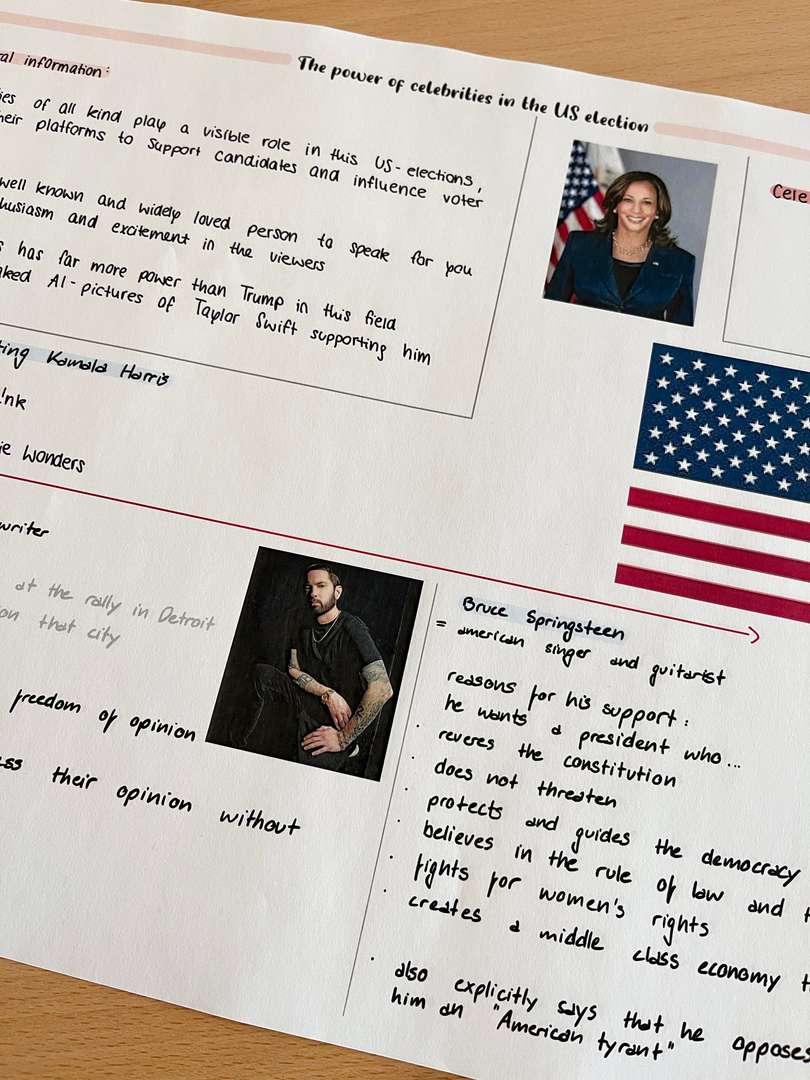 The power of celebrities in the US election
information:
of all kind play a visible role in this US-elections,
their platforms to support candidates and influence voter
well known and widely loved person to speak for you
and excitement in the viewers
has far more power than Trump in this field
AI-pictures of Taylor Swift supporting him
Kamala Harris
Wonders
writer
at the rally in Detroit
on that city
freedom of opinion
their opinion without
Bruce Springsteen
= american singer and guitarist
reasons for his support:
he wants a president who...
· reveres the constitution
· does not threaten
· protects and guides the democracy
· believes in the rule of law and
· fights for women's rights
· creates a middle class economy
· also explicitly says that he opposes
him an "American tyrant"